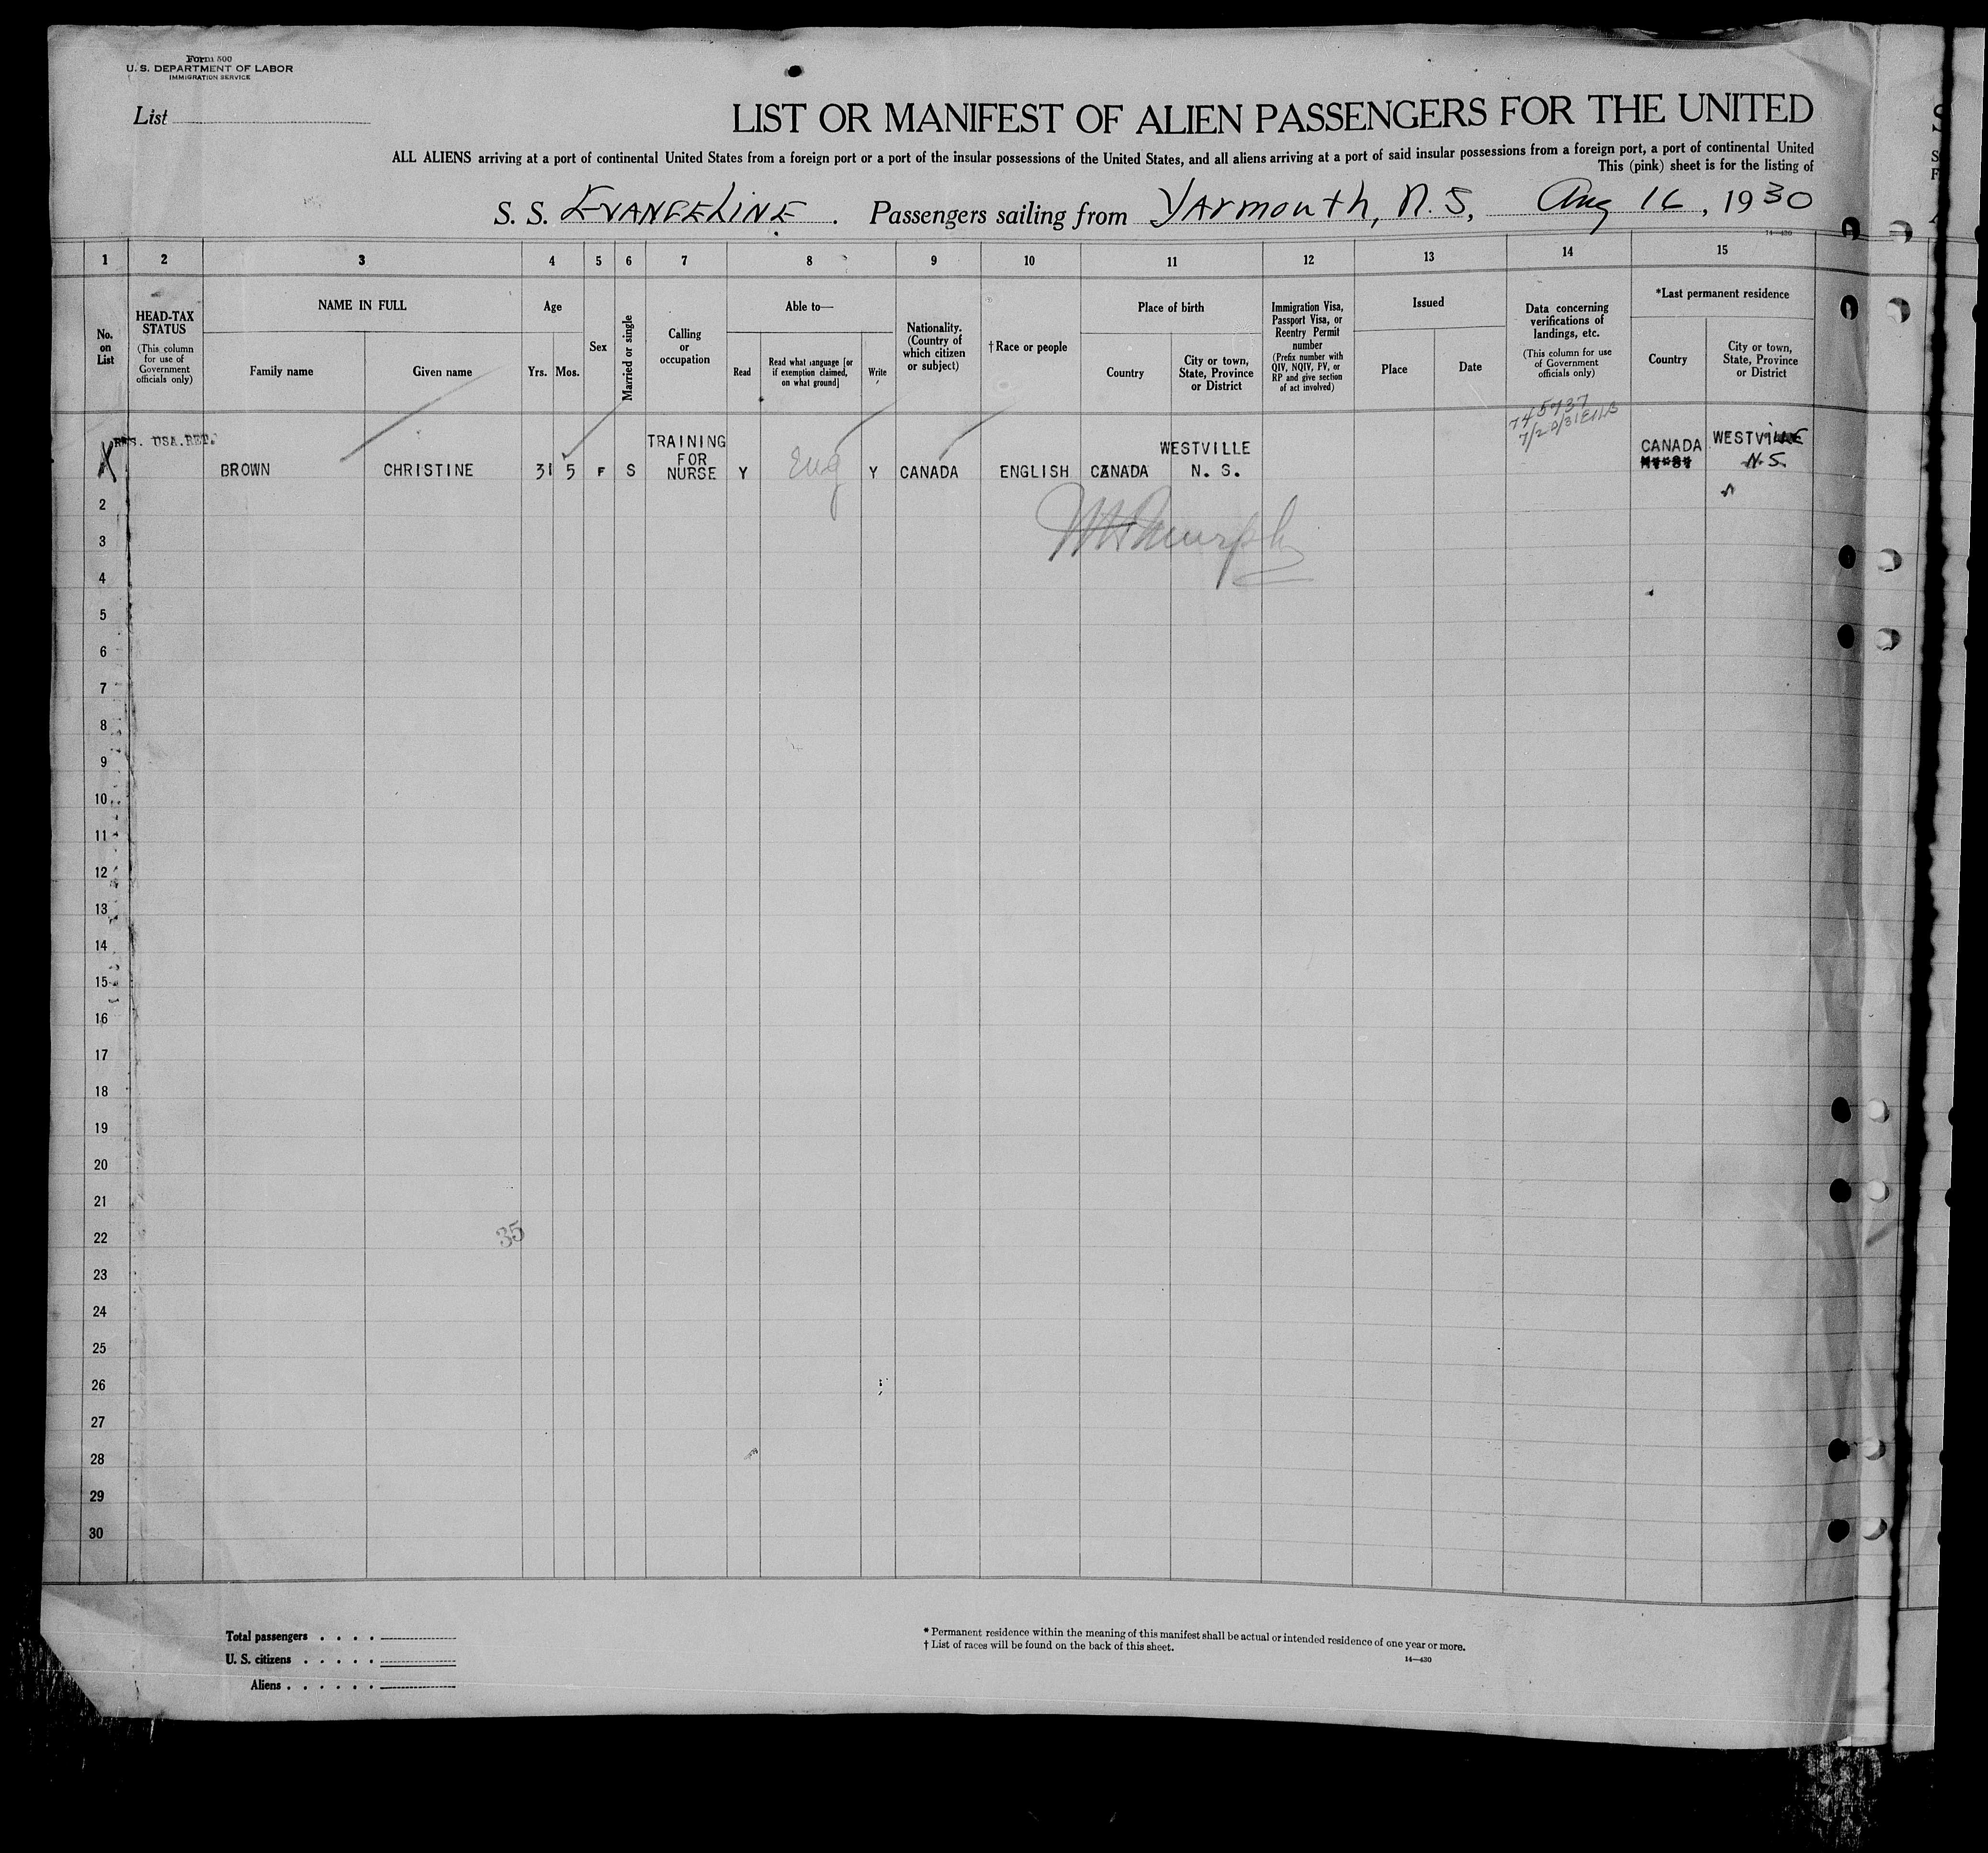 Form 500
U. S. DEPARTMENT OF LABOR
IMMIGRATION SERVICE
List
LIST OR MANIFEST OF ALIEN PASSENGERS FOR THE UNITED
ALL ALIENS arriving at a port of continental United States from a foreign port or a port of the insular possessions of the United States, and all aliens arriving at a port of said insular possessions from a foreign port, a port of continental United
This (pink) sheet is for the listing of
S. S. EVANGELINE . Passengers sailing from Yarmouth, N. S, Aug 16 , 1930
14—430
1 2 3 4 5 6 7 8 9 10 11 12 13 14 15
No. on List
HEAD-TAX STATUS
(This column for use of Government officials only)
NAME IN FULL
Family name
Given name
Age
Yrs. Mos.
Sex
Married or single
Calling or occupation
Able to—
Read
Read what language [or if exemption claimed, on what ground]
Write
Nationality. (Country of which citizen or subject)
†Race or people
Place of birth
Country
City or town, State, Province or District
Immigration Visa, Passport Visa, or Reentry Permit number
(Prefix number with QIV, NQIV, PV, or RP and give section of act involved)
Issued
Place
Date
Data concerning verifications of landings, etc.
(This column for use of Government officials only)
*Last permanent residence
Country
City or town, State, Province or District
USA.RET.
TRAINING FOR NURSE
WESTVILLE
CANADA WESTVILLE
BROWN CHRISTINE 31 5 F S Y Eng Y CANADA ENGLISH CANADA N. S. N.S.
2
3
4
5
6
7
8
9
10
11
12
13
14
15
16
17
18
19
20
21
22
35
23
24
25
26
27
28
29
30
Total passengers
U. S. citizens
Aliens
* Permanent residence within the meaning of this manifest shall be actual or intended residence of one year or more.
† List of races will be found on the back of this sheet.
14—430